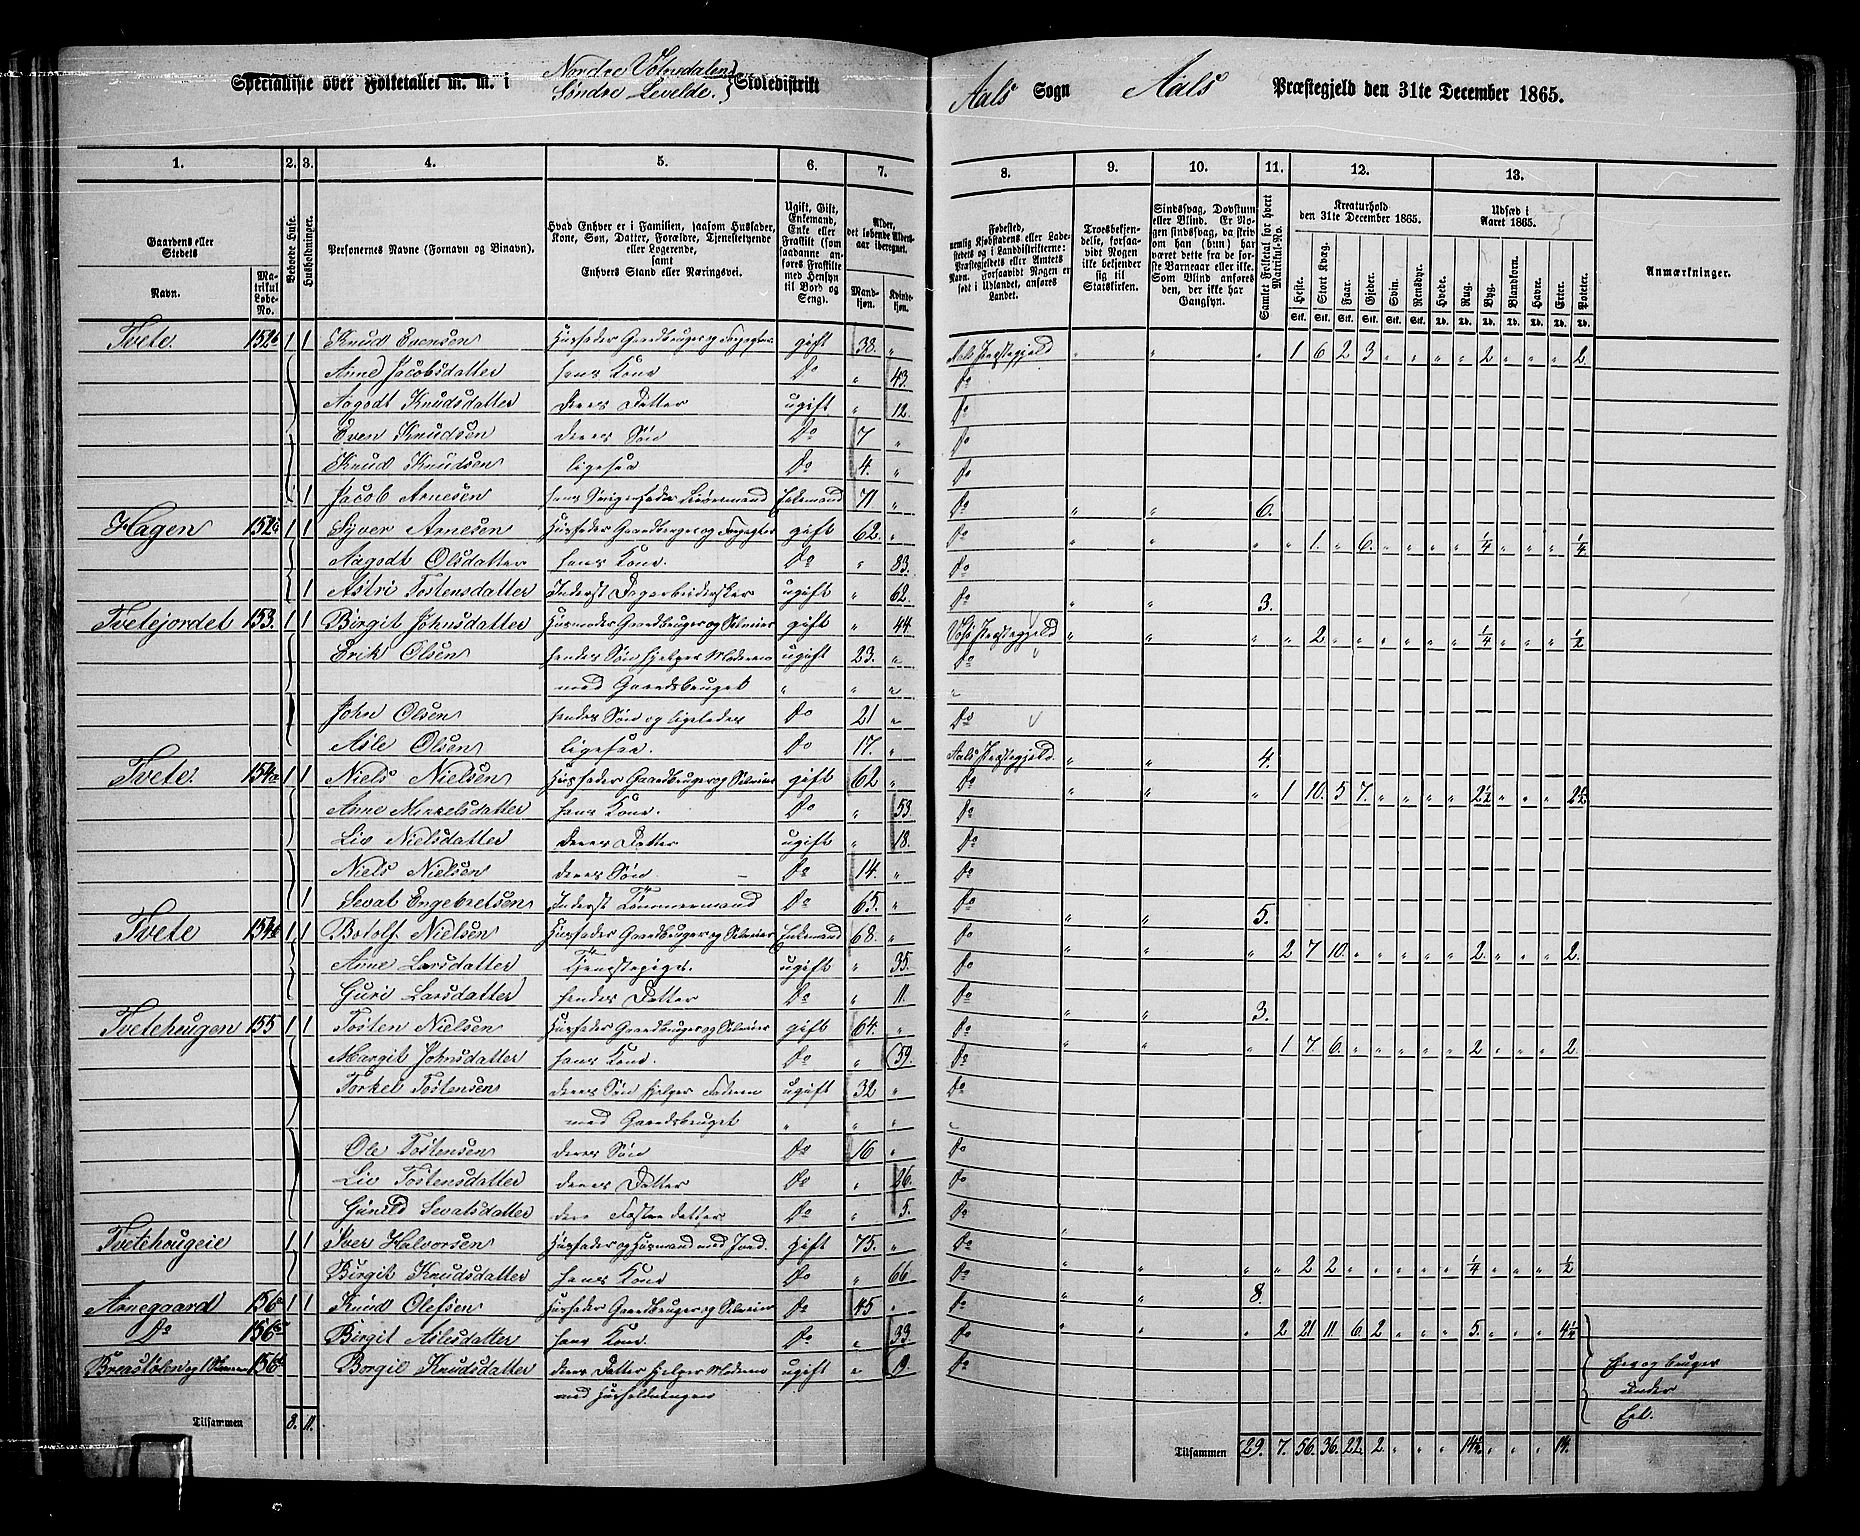 Specialliste over Folketallet m. m. i Nordre Votndalen Søndre Levelde. Skoledistrikt
Aals Sogn Aals Præstegjeld den 31te December 1865.
1. 2. 3. 4. 5. 6. 7. 8. 9. 10. 11. 12. 13.
Gaardens eller Stedets Navn. Matrikul Løbe-No. Beboede Huse. Husholdninger. Personernes Navne (Fornavn og Binavn). Hvad Enhver er i Familien, saasom Husfader, Kone, Søn, Datter, Forældre, Tjenestetyende eller Logerende, samt Enhvers Stand eller Næringsvei. Ugift, Gift, Enkemand, Enke eller Fraskilt (som saadanne anføres Fraskilte med Hensyn til Bord og Seng). Alder, det løbende Aldersaar iberegnet. Mandkjøn. Kvindekjøn.
Fødested, nemlig Kjøbstadens eller Ladestedets og i Landdistrikterne: Præstegjeldets eller Amtets Navn. Forsaavidt Nogen er født i Udlandet, anføres Landet. Troesbekjendelse, forsaavidt Nogen ikke bekjender sig til Statskirken. Sindssvag, Døvstum eller Blind. Er Nogen sindssvag, da skrives om han (hun) har været dette fra de første Barneaar eller ikke. Som Blind anføres den, der ikke har Gangsyn. Samlet Folketal for hvert Matrikul-No. Kreaturhold den 31te December 1865. Udsæd i Aaret 1865. Anmærkninger.
Heste. Stort Kvæg. Faar. Gjeder. Svin. Rensdyr. Hvede. Rug. Byg. Blandkorn. Havre. Erter. Poteter.
Stk. Stk. Stk. Stk. Stk. Stk. Td. Td. Td. Td. Td. Td. Td.
Tvete. 152b 1 1 Knud Evensen Husfader Gaardbruger og gift 38. „ Aals Præstegjeld „ „ „ 1 6 2 3 „ „ „ „ 2 „ „ „ 2
Anne Jacobsdatter hans Kone Do „ 43. Do
Aagodt Knudsdatter deres Datter ugift „ 12. Do
Even Knudsen deres Søn Do 7 „ Do
Knud Knudsen ligesaa Do 4. „ Do
1 Jacob Arnesen Enkemand 71 „ Do „ „ 6.
Hagen 152a 1 1 Syver Arnesen Husfader Gaardbruger og gift 62. „ Do „ „ „ „ 1. „ 6. „ „ „ „ 1/4 „ „ „ 1/4
Aagodt Olsdatter hans Kone. Do „ 83. Do
1 Astri Tostensdatter Inderst Dagarbeiderske ugift „ 62. Do „ „ 3.
Tvetejordet 153. 1 1 Birgit Johnsdatter Husmoder Gaardbruger og Selveier gift „ 44 Vos Præstegjeld „ „ „ „ 2 „ „ „ „ „ „ 1/4 „ „ „ 1/2
Erik Olsen hendes Søn hjelper Moderen ugift 23. „ Do
med Gaardsbruget „ „ „ „
John Olsen hendes Søn og ligeledes Do 21 „ Do
Asle Olsen ligesaa. Do 17. „ Aals Præstegjeld „ „ 4.
Tvete. 154a 1 1 Niels Nielsen Husfader Gaardbruger og Selveier gift 62 „ Do „ „ „ 1 10. 5 7. „ „ „ „ 2 1/2 „ „ „ 2 1/2
Anne Mikkelsdatter hans Kone. Do „ 53. Do
Liv Nielsdatter deres Datter ugift „ 18. Do
Niels Nielsen deres Søn Do 14. „ Do
1 Sevat Engebretsen Inderst Tømmermand Do 65. „ Do „ „ 5.
Tvete 154b 1 1 Botolf Nielsen Husfader Gaardbruger og Selveier Enkemand 68. „ Do „ „ „ 2 7 10. „ „ „ „ „ 2. „ „ „ 2.
Anne Larsdatter Tjenestepige. ugift „ 35. Do
Guri Larsdatter hendes Datter Do „ 11. Do „ „ 3.
Tvetehougen 155 1 1 Tosten Nielsen Husfader Gaardbruger og Selveier gift 64. „ Do „ „ „ 1 7. 6. „ „ „ „ „ 2 „ „ „ 2.
Margit Johnsdatter hans Kone. Do „ 59. Do
Torkel Tostensen deres Søn hjelper Faderen ugift 32 „ Do
med Gaardsbruget „ „ „ „
Ole Tostensen deres Søn Do 16 „ Do
Liv Tostensdatter deres Datter Do „ 26. Do
Gunild Sevatsdatter Fosterdatter Do „ 5. Do
Tvetehougeie 1 1 Iver Halvorsen Husfader og Husmand med Jord. gift 75. „ Do „ „ „ „ 2 2 „ „ „ „ „ 1/4 „ „ „ 1/2
Birgit Knudsdatter hans Kone Do „ 66 Do „ „ 8.
Arnegaard 156 1 1 Knud Olefsen Husfader Gaardbruger og Selveier Do 45 „ Do „ „ „ 2 21 11 6. 2 „ „ „ 5. „ „ „ 4 1/4
Do 156 Birgit Aslesdatter hans Kone Do „ 33. Do
156 Borgil Knudsdatter deres Datter hjelper Moderen ugift „ 19. Do
med Husholdningen
og bruges under Eet.
Tilsammen 8. 11. Tilsammen 29. 7. 56. 36. 22. 2 „ „ „ 14 „ „ „ 14.